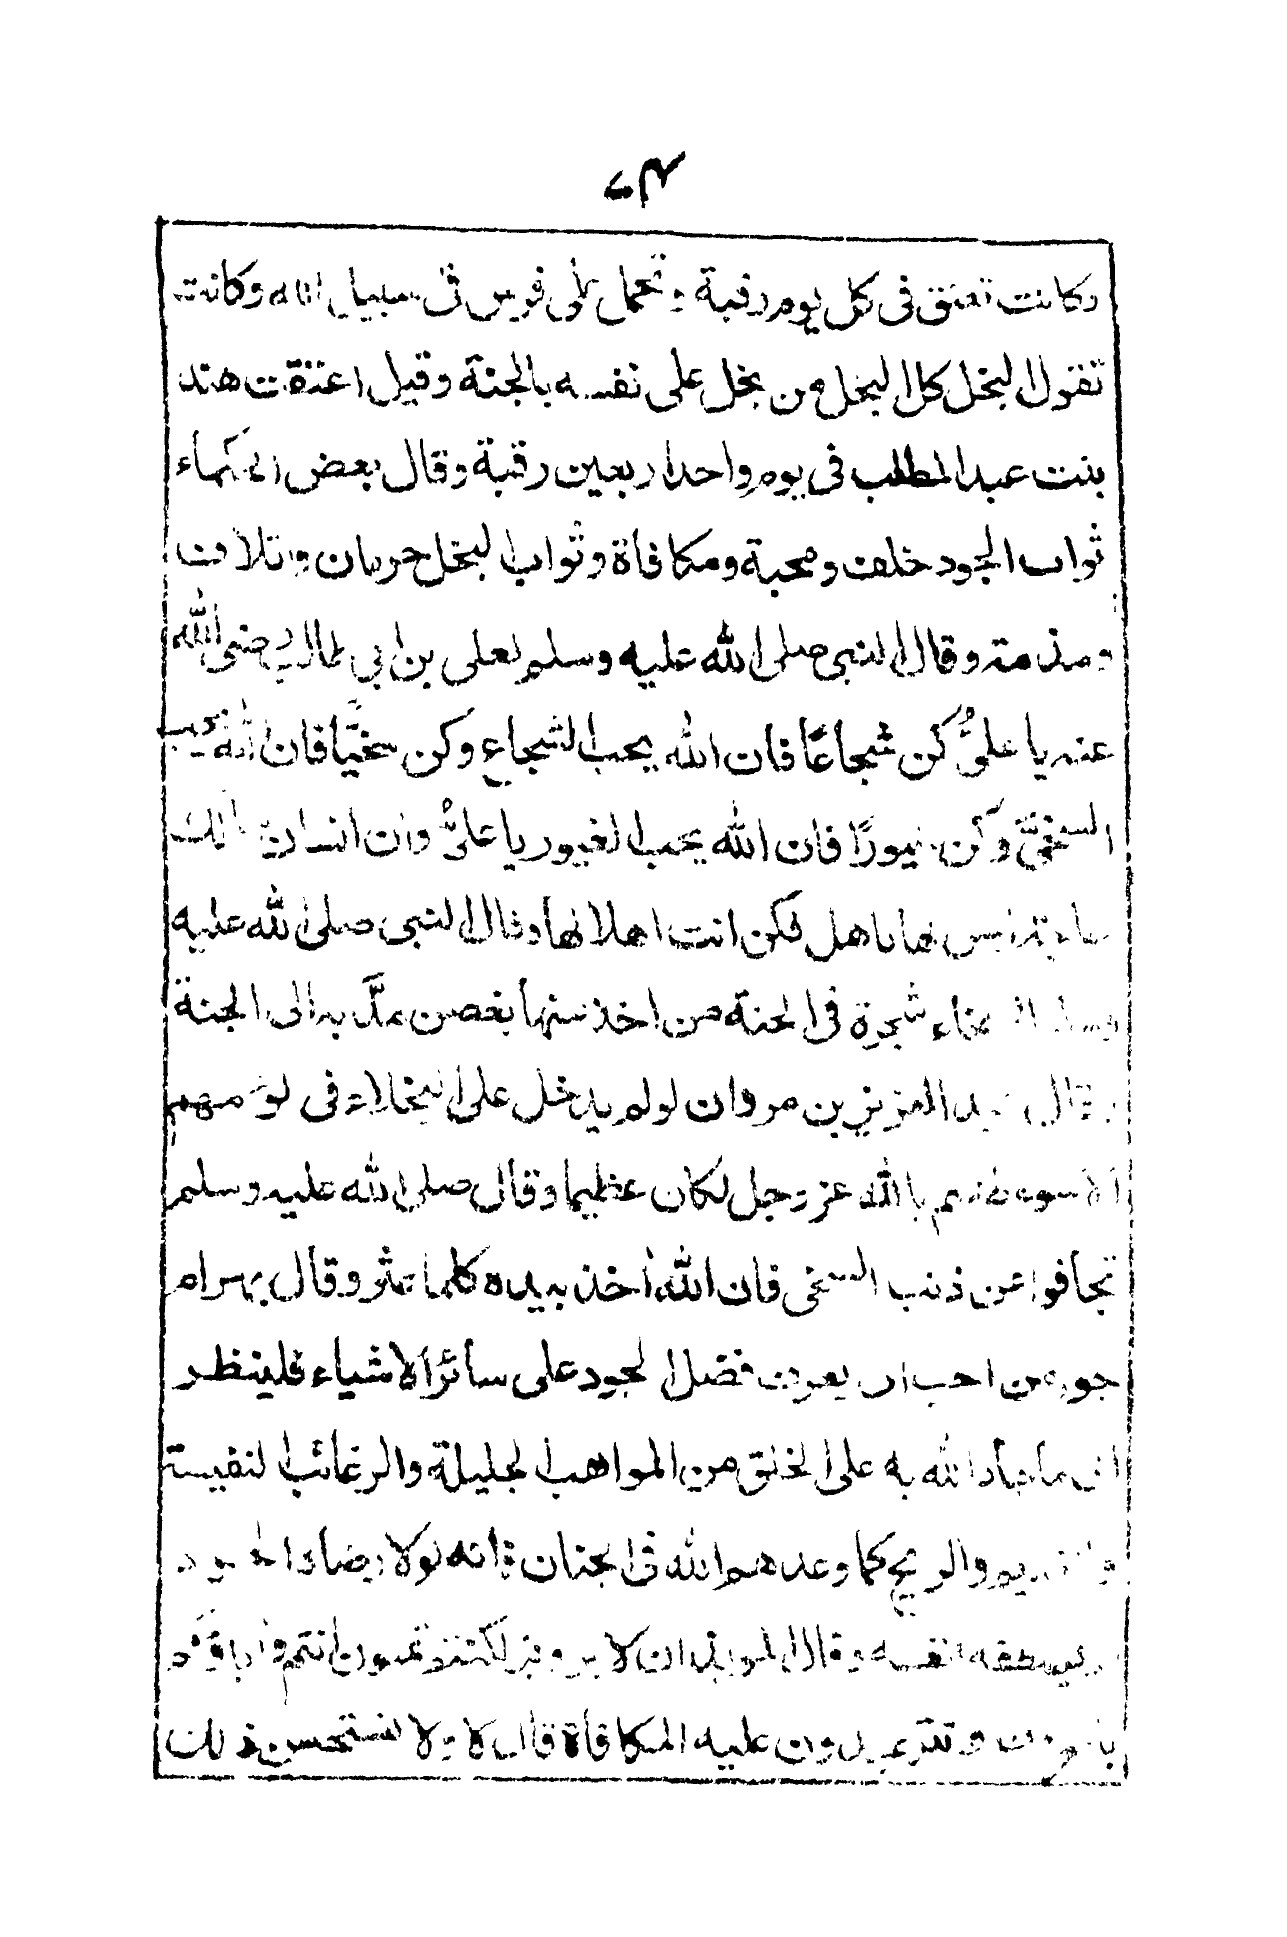 وكانت تعتق في كل يوم رقبة وتحمل على فرس في سبيل الله وكانت
تقول البخل كل البخل من بخل على نفسه بالجنة وقيل اعتقت هند
بنت عبد المطلب في يوم واحد اربعين رقبة وقال بعض الحكماء
ثواب الجود خلف ومحبة ومكافأة وثواب البخل حرمان واتلاف
ومذمة وقال النبي صلى الله عليه وسلم لعلي بن ابي طالب رضي الله
عنه يا عليُّ كن شجاعًا فان الله يحب الشجاع وكن سخيًّا فان الله يحب
السخيَّ وكن غيورًا فان الله يحب الغيور يا عليُّ وان انسان سألك
حاجة ليس لها باهل فكن انت اهلا لها وقال النبي صلى الله عليه
وسلم السخاء شجرة في الجنة من اخذ منها بغصن مدَّ به الى الجنة
وقال عبد العزيز بن مروان لو لم يدخل على البخلاء في لؤمهم
الا سوء ظنهم بالله عز وجل لكان عظيما وقال صلى الله عليه وسلم
تجافوا عن ذنب السخي فان الله أخذ بيده كلما عثر وقال بهرام
جور من احب ان يعرف فضل الجود على سائر الاشياء فلينظر
الى ما جاد الله به على الخلق من المواهب الجليلة والرغائب النفيسة
والنسيم والريح كما وعدهم الله في الجنان فانه لولا رضاه الجود
لم يصطفه لنفسه وقال الموبذان لابرويز اكنتم تمنون انتم واباؤكم
بالمعروف وتترصدون عليه المكافأة قال لا ولا نستحسن ذلك